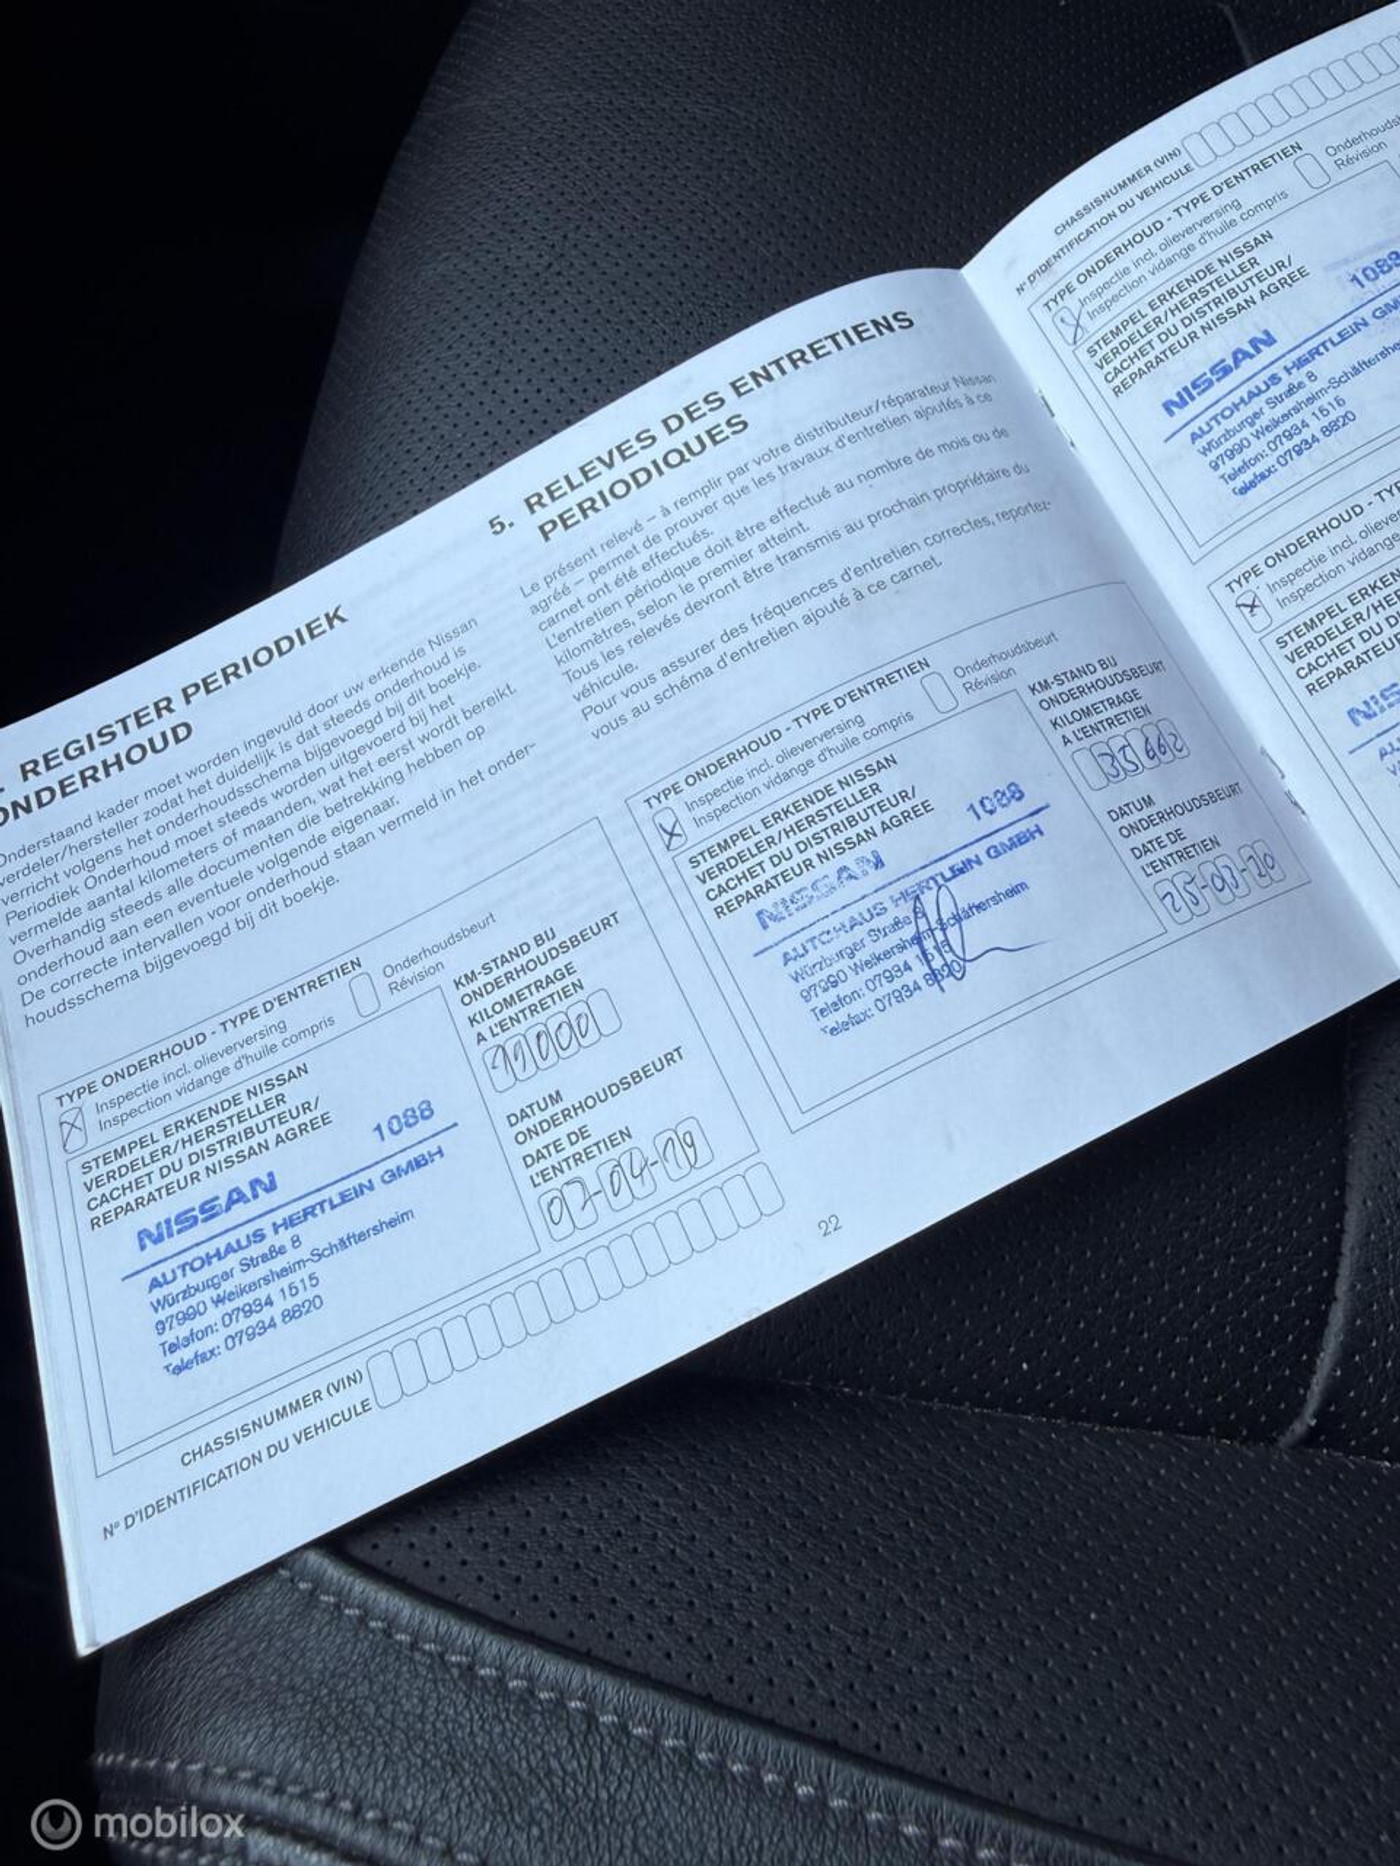 REGISTER PERIODIEK
ONDERHOUD
Onderstaand kader moet worden ingevuld door uw erkende Nissan
verdeler/hersteller zodat het duidelijk is dat steeds onderhoud is
verricht volgens het onderhoudsschema bijgevoegd bij dit boekje.
Periodiek Onderhoud moet steeds worden uitgevoerd bij het
vermelde aantal kilometers of maanden, wat het eerst wordt bereikt.
Overhandig steeds alle documenten die betrekking hebben op
onderhoud aan een eventuele volgende eigenaar.
De correcte intervallen voor onderhoud staan vermeld in het onder-
houdsschema bijgevoegd bij dit boekje.
TYPE ONDERHOUD - TYPE D'ENTRETIEN
Inspectie incl. olieverversing
Inspection vidange d'huile compris
Onderhoudsbeurt
Révision
STEMPEL ERKENDE NISSAN
VERDELER/HERSTELLER
CACHET DU DISTRIBUTEUR/
REPARATEUR NISSAN AGREE
1088
NISSAN
AUTOHAUS HERTLEIN GMBH
Würzburger Straße 8
97990 Weikersheim-Schäftersheim
Telefon: 07934 1515
Telefax: 07934 8820
KM-STAND BIJ
ONDERHOUDSBEURT
KILOMETRAGE
A L'ENTRETIEN
DATUM
ONDERHOUDSBEURT
DATE DE
L'ENTRETIEN
CHASSISNUMMER (VIN)
N° D'IDENTIFICATION DU VEHICULE
5. RELEVES DES ENTRETIENS
PERIODIQUES
Le présent relevé – à remplir par votre distributeur/réparateur Nissan
agréé – permet de prouver que les travaux d'entretien ajoutés à ce
carnet ont été effectués.
L'entretien périodique doit être effectué au nombre de mois ou de
kilomètres, selon le premier atteint.
Tous les relevés devront être transmis au prochain propriétaire du
véhicule.
Pour vous assurer des fréquences d'entretien correctes, reportez-
vous au schéma d'entretien ajouté à ce carnet.
TYPE ONDERHOUD - TYPE D'ENTRETIEN
Inspectie incl. olieverversing
Inspection vidange d'huile compris
Onderhoudsbeurt
Révision
STEMPEL ERKENDE NISSAN
VERDELER/HERSTELLER
CACHET DU DISTRIBUTEUR/
REPARATEUR NISSAN AGREE
1088
NISSAN
AUTOHAUS HERTLEIN GMBH
Würzburger Straße 8
97990 Weikersheim-Schäftersheim
Telefon: 07934 1515
Telefax: 07934 8820
KM-STAND BIJ
ONDERHOUDSBEURT
KILOMETRAGE
A L'ENTRETIEN
35662
DATUM
ONDERHOUDSBEURT
DATE DE
L'ENTRETIEN
25-03-20
22
CHASSISNUMMER (VIN)
N° D'IDENTIFICATION DU VEHICULE
TYPE ONDERHOUD - TYPE D'ENTRETIEN
Inspectie incl. olieverversing
Inspection vidange d'huile compris
Révision
STEMPEL ERKENDE NISSAN
VERDELER/HERSTELLER
CACHET DU DISTRIBUTEUR/
REPARATEUR NISSAN AGREE
1088
NISSAN
AUTOHAUS HERTLEIN
Würzburger Straße 8
97990
Telefon: 07934 1515
Telefax: 07934 8820
TYPE ONDERHOUD
Inspectie incl.
Inspection vidange
mobilox